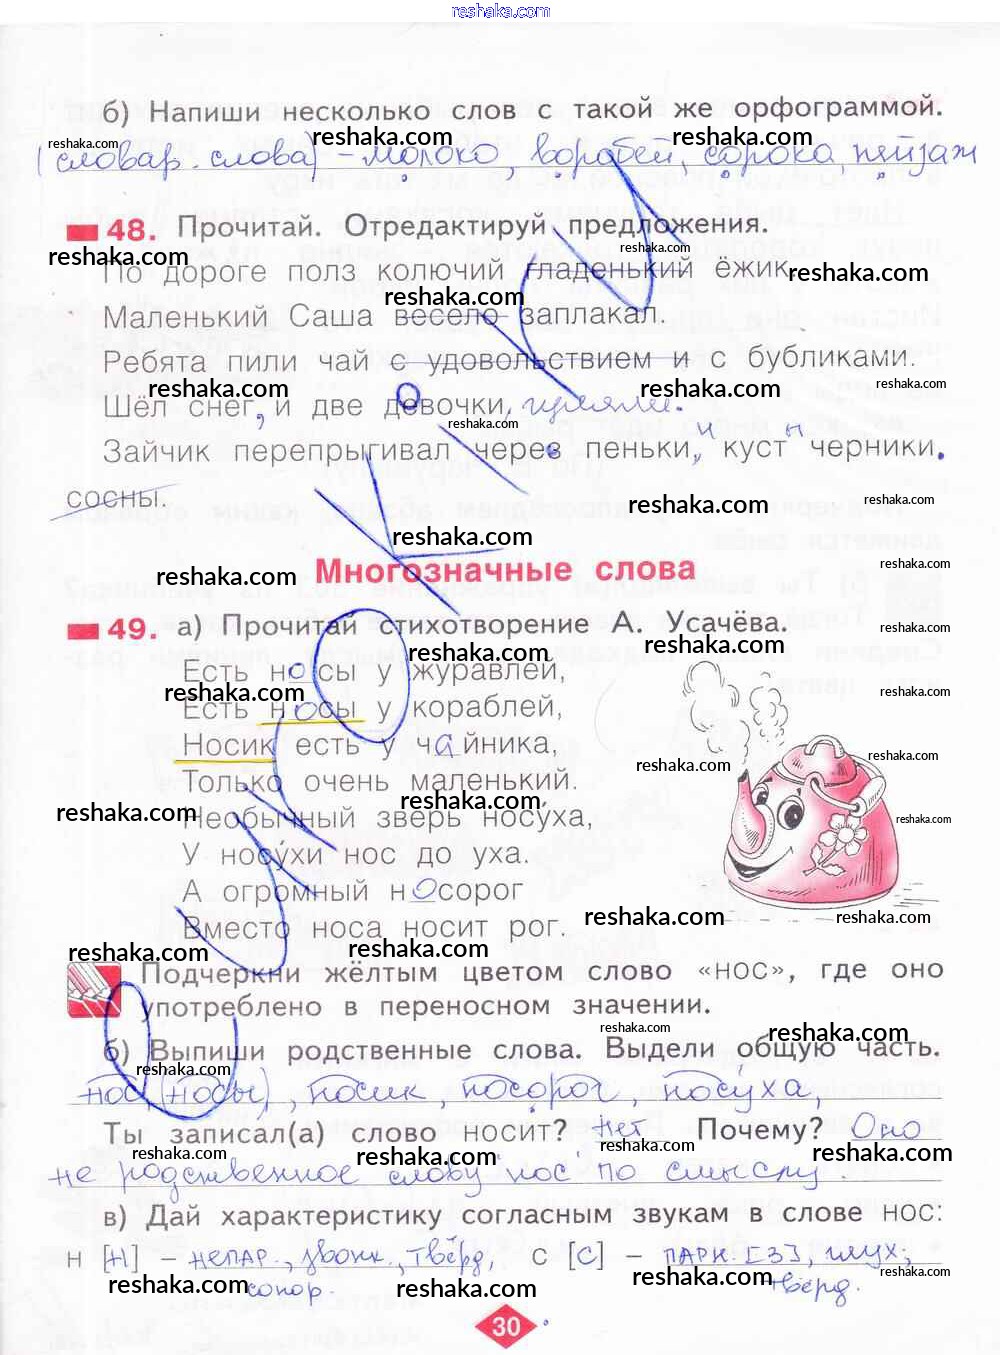 reshaka.com
б) Напиши несколько слов с такой же орфограммой.
reshaka.com reshaka.com reshaka.com
(словар. слова) – молоко, воробей, сорока, пейзаж
48. Прочитай. Отредактируй предложения.
reshaka.com reshaka.com
По дороге полз колючий гладенький ёжик.
reshaka.com reshaka.com
Маленький Саша весело заплакал.
Ребята пили чай с удовольствием и с бубликами.
reshaka.com reshaka.com reshaka.com
Шёл снег, и две девочки, гуляли.
reshaka.com
Зайчик перепрыгивал через пеньки, и куст н черники.
сосны.
reshaka.com reshaka.com
reshaka.com
Многозначные слова
reshaka.com reshaka.com
49. а) Прочитай стихотворение А. Усачёва.
reshaka.com
reshaka.com reshaka.com
Есть носы у журавлей,
reshaka.com reshaka.com
Есть носы у кораблей,
Носик есть у чайника,
reshaka.com reshaka.com
Только очень маленький.
reshaka.com reshaka.com
Необычный зверь носу́ха,
reshaka.com
У носу́хи нос до уха.
А огромный носорог
reshaka.com reshaka.com
Вместо носа носит рог.
reshaka.com reshaka.com
Подчеркни жёлтым цветом слово «нос», где оно
употреблено в переносном значении.
reshaka.com reshaka.com
б) Выпиши родственные слова. Выдели общую часть.
reshaka.com
нос, (носы), носик, носорог, носу́ха,
Ты записал(а) слово носит? нет Почему? Оно
reshaka.com reshaka.com reshaka.com reshaka.com
не родственное слову нос по смыслу.
в) Дай характеристику согласным звукам в слове нос:
н [н] – непар., звонк., твёрд, с [с] – парн. [з], глух;
reshaka.com reshaka.com reshaka.com reshaka.com
сонор. твёрд.
30